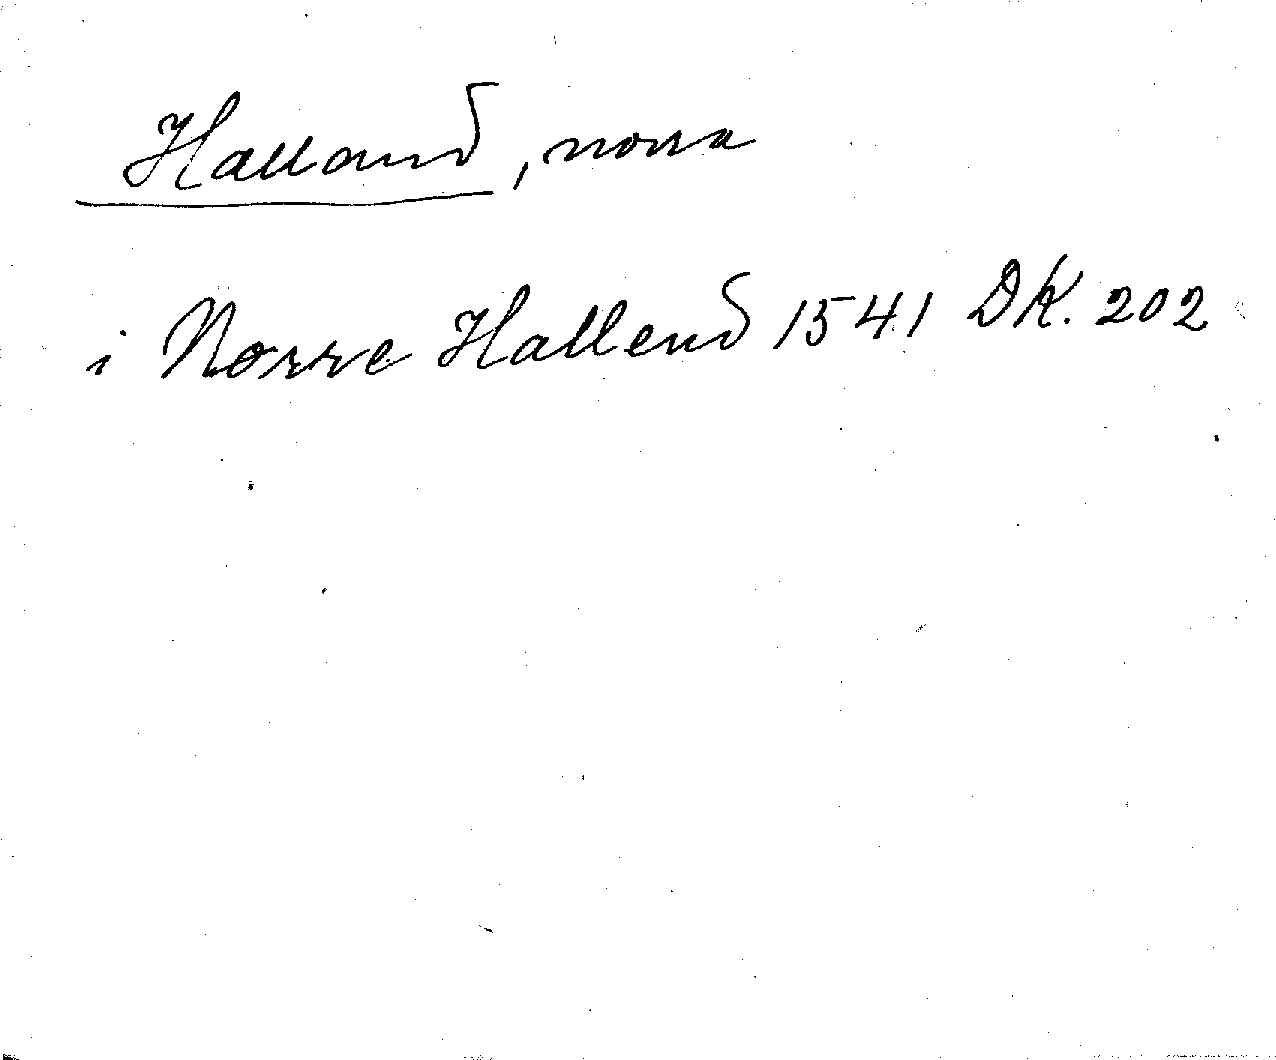 Halland, norra
i Norre Hallend 1541 DK. 202